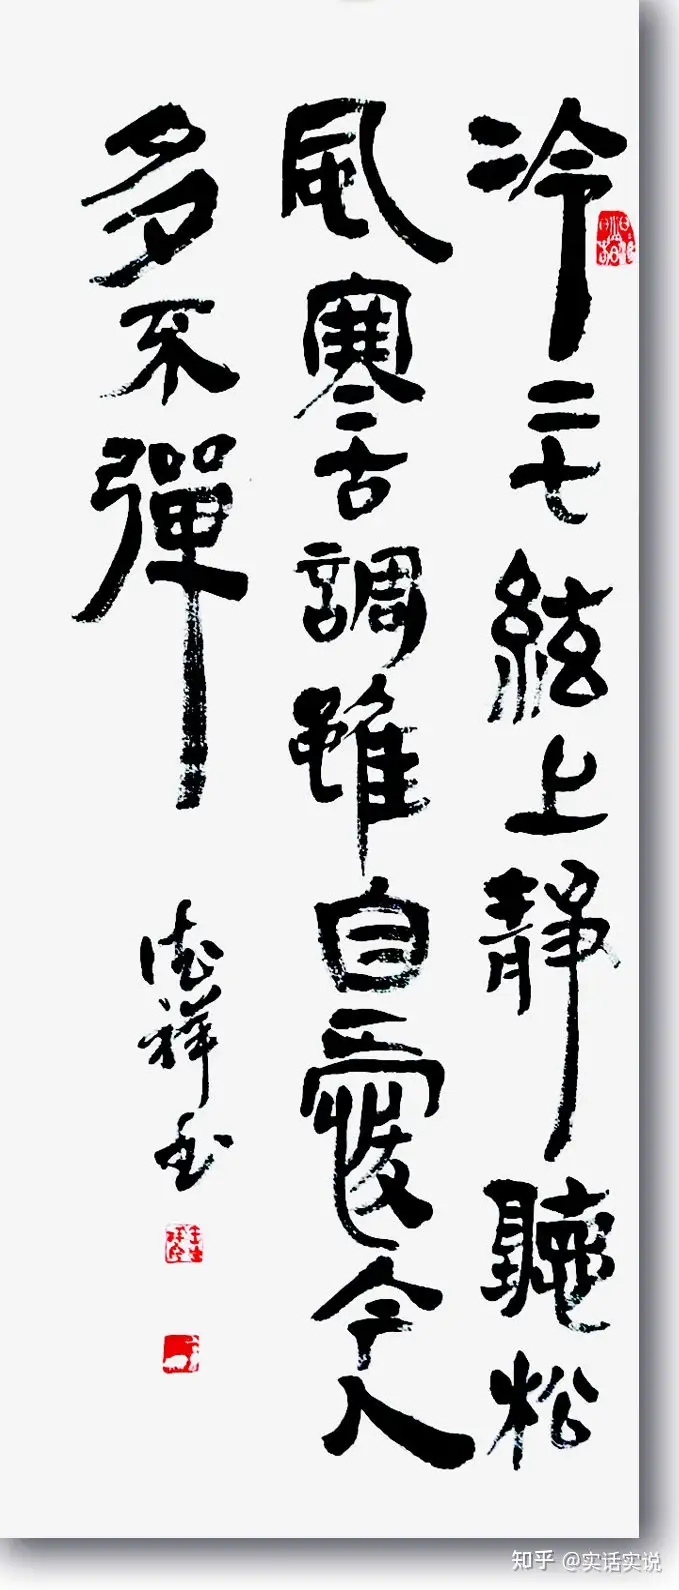 冷〻七絃上靜聽松
風寒古調雖自愛今人
多不彈
德祥書
知乎 @实话实说